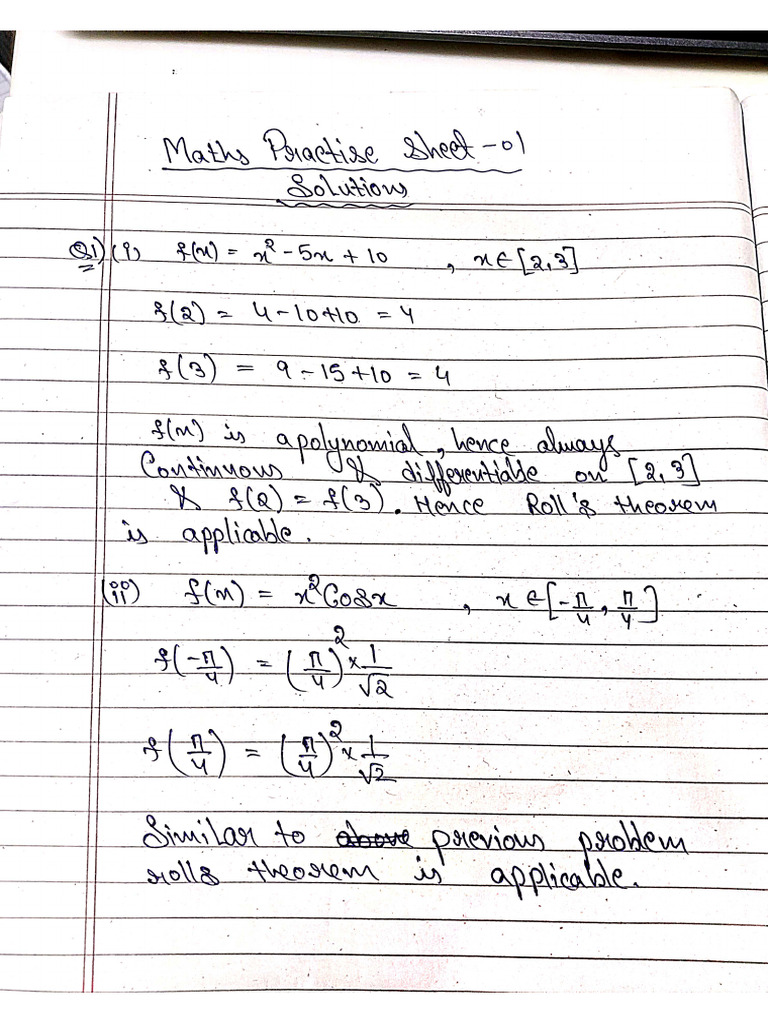 Maths Practise Sheet -01
Solutions
Q1) (i) f(x) = x² - 5x + 10 , x ∈ [2,3]
f(2) = 4 - 10 + 10 = 4
f(3) = 9 - 15 + 10 = 4
f(x) is a polynomial, hence always
Continuous & differentiable on [2,3]
& f(2) = f(3). Hence Roll's theorem
is applicable.
(ii) f(x) = x² Cosx , x ∈ [-π/4, π/4]
f(-π/4) = (π/4)² × 1/√2
f(π/4) = (π/4)² × 1/√2
Similar to above previous problem
rolls theorem is applicable.